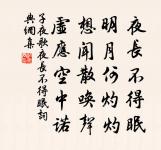 夜長不得眠
明月何灼灼
想聞散喚聲
虛應空中諾
子夜歌夜長不得眠詞
集